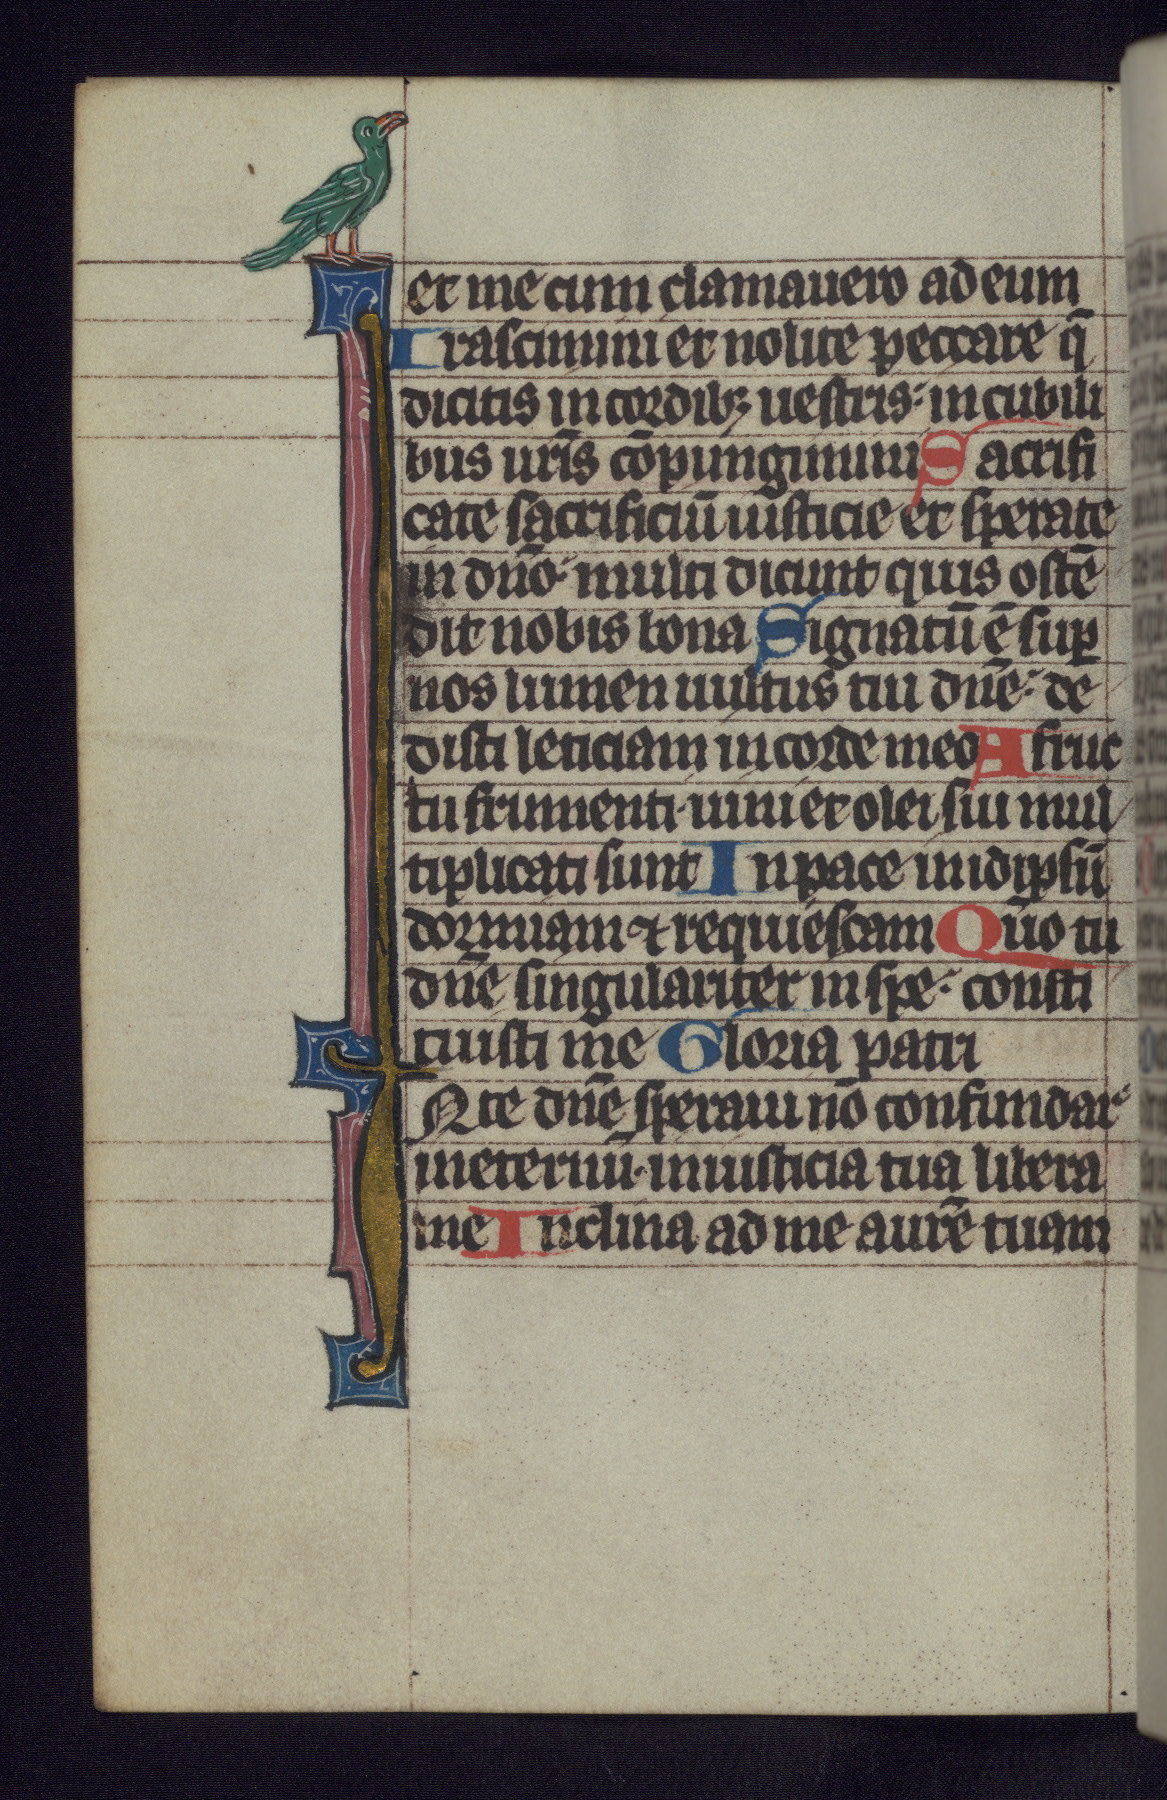 et me cum clamauero ad eum
Irascimini et nolite peccare q̄
dicitis in cordibꝫ uestris: in cubili
bus ur̄is cōpungimini Sacrifi
cate sacrificiū iusticie et sperate
in dn̄o: multi dicunt quis ostē
dit nobis bona Signatū ē suꝑ
nos lumen uultus tui dn̄e: de
disti leticiam in corde meo A fruc
tu frumenti · uini et olei sui mul
tiplicati sunt In pace in idipsū
dormiam ⁊ requiescam Qūo tu
dn̄e singulariter in spe: consti
tuisti me Gloria patri
IN te dn̄e speraui nō confundar
in eternū · in iusticia tua libera
me Inclina ad me aurē tuam